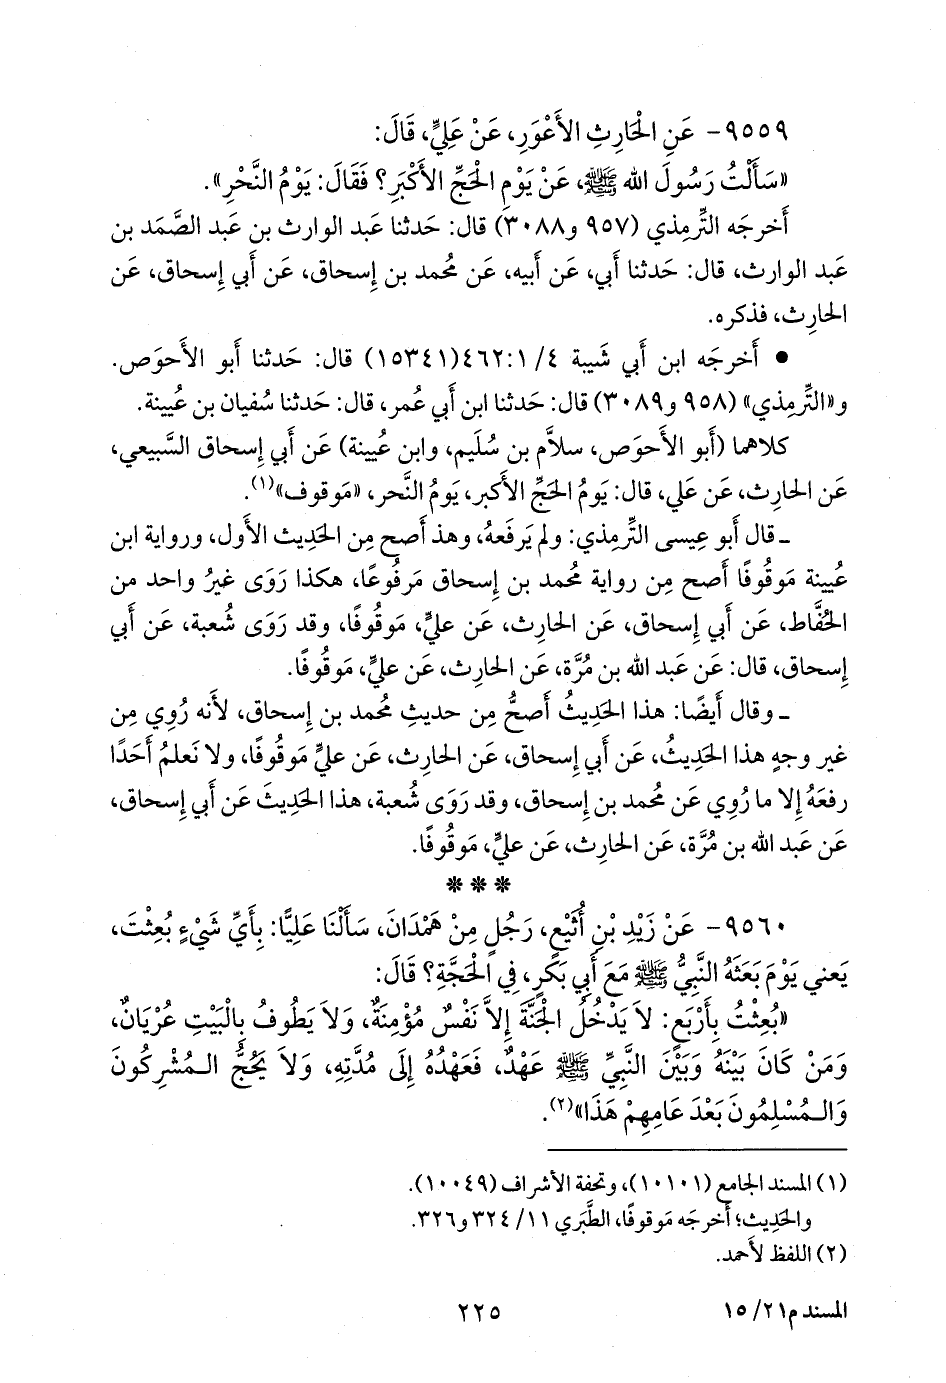 ٩٥٥٩- عَنِ الْحَارِثِ الأَعْوَرِ، عَنْ عَلِيٍّ، قَالَ:
«سَأَلْتُ رَسُولَ الله ﷺ، عَنْ يَوْمِ الْحَجِّ الأَكْبَرِ؟ فَقَالَ: يَوْمُ النَّحْرِ».
أَخرجَه التِّرمِذي (٩٥٧ و٣٠٨٨) قال: حَدثنا عَبد الوارث بن عَبد الصَّمَد بن
عَبد الوارث، قال: حَدثنا أَبي، عَن أَبيه، عَن مُحمد بن إِسحاق، عَن أَبي إِسحاق، عَن
الحارِث، فذكره.
• أَخرجَه ابن أَبي شَيبة ٤/ ٤٦٢:١(١٥٣٤١) قال: حَدثنا أَبو الأَحوَص.
و«التِّرمِذي» (٩٥٨ و٣٠٨٩) قال: حَدثنا ابن أَبي عُمر، قال: حَدثنا سُفيان بن عُيينة.
كلاهما (أَبو الأَحوَص، سلاَّم بن سُلَيم، وابن عُيينة) عَن أَبي إِسحاق السَّبيعي،
عَن الحارِث، عَن علي، قال: يَومُ الحَجِّ الأَكبر، يَومُ النَّحر، «مَوقوف»(١).
ـ قال أَبو عِيسى التِّرمِذي: ولم يَرفَعهُ، وهذ أَصح مِن الحَديث الأَول، ورواية ابن
عُيينة مَوقُوفًا أَصح مِن رواية مُحمد بن إِسحاق مَرفُوعًا، هكذا رَوَى غيرُ واحد من
الحُفَّاط، عَن أَبي إِسحاق، عَن الحارِث، عَن عليٍّ، مَوقُوفًا، وقد رَوَى شُعبة، عَن أَبي
إِسحاق، قال: عَن عَبد الله بن مُرَّة، عَن الحارِث، عَن عليٍّ، مَوقُوفًا.
ـ وقال أَيضًا: هذا الحَديثُ أَصحُّ مِن حديثِ مُحمد بن إِسحاق، لأَنه رُوِي مِن
غير وجهٍ هذا الحَديثُ، عَن أَبي إِسحاق، عَن الحارِث، عَن عليٍّ مَوقُوفًا، ولا نَعلمُ أَحَدًا
رفعَهُ إِلا ما رُوِي عَن مُحمد بن إِسحاق، وقد رَوَى شُعبة، هذا الحَديثَ عَن أَبي إِسحاق،
عَن عَبد الله بن مُرَّة، عَن الحارِث، عَن عليٍّ، مَوقُوفًا.
***
٩٥٦٠- عَنْ زَيْدِ بْنِ أُثَيْعٍ، رَجُلٍ مِنْ هَمْدَانَ، سَأَلْنَا عَلِيًّا: بِأَيِّ شَيْءٍ بُعِثْتَ،
يَعني يَوْمَ بَعَثَهُ النَّبِيُّ ﷺ مَعَ أَبِي بَكْرٍ، فِي الْحَجَّةِ؟ قَالَ:
«بُعِثْتُ بِأَرْبَعٍ: لاَ يَدْخُلُ الْجَنَّةَ إِلاَّ نَفْسٌ مُؤْمِنَةٌ، وَلاَ يَطُوفُ بِالْبَيْتِ عُرْيَانٌ،
وَمَنْ كَانَ بَيْنَهُ وَبَيْنَ النَّبِيِّ ﷺ عَهْدٌ، فَعَهْدُهُ إِلَى مُدَّتِهِ، وَلاَ يَحُجُّ الـمُشْرِكُونَ
وَالـمُسْلِمُونَ بَعْدَ عَامِهِمْ هَذَا»(٢).
(١) المسند الجامع (١٠١٠١)، وتحفة الأشراف (١٠٠٤٩).
والحَدِيث؛ أَخرجَه مَوقوفًا، الطَّبَري ١١/ ٣٢٤ و٣٢٦.
(٢) اللفظ لأَحمد.
المسند م٢١/ ١٥
٢٢٥